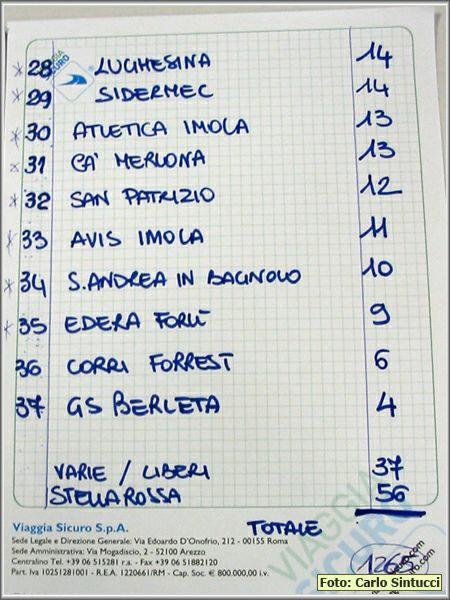 VIAGGIA
SICURO
* 28 LUGHESINA 14
* 29 SIDERMEC 14
* 30 ATLETICA IMOLA 13
* 31 CA' MERLONA 13
* 32 SAN PATRIZIO 12
* 33 AVIS IMOLA 11
* 34 S. ANDREA IN BAGNOLO 10
* 35 EDERA FORLÌ 9
36 CORRI FORREST 6
37 GS BERLETA 4
VARIE / LIBERI 37
STELLA ROSSA 56
TOTALE
VIAGGIA
SICURO
Viaggia Sicuro S.p.A.
Sede Legale e Direzione Generale: Via Edoardo D'Onofrio, 212 - 00155 Roma
Sede Amministrativa: Via Mogadiscio, 2 - 52100 Arezzo
Centralino Tel. +39 06 515281 r.a. - Fax +39 06 51882120
Part. Iva 10251281001 - R.E.A. 1220661/RM - Cap. Soc. € 800.000,00 i.v.
Foto: Carlo Sintucci